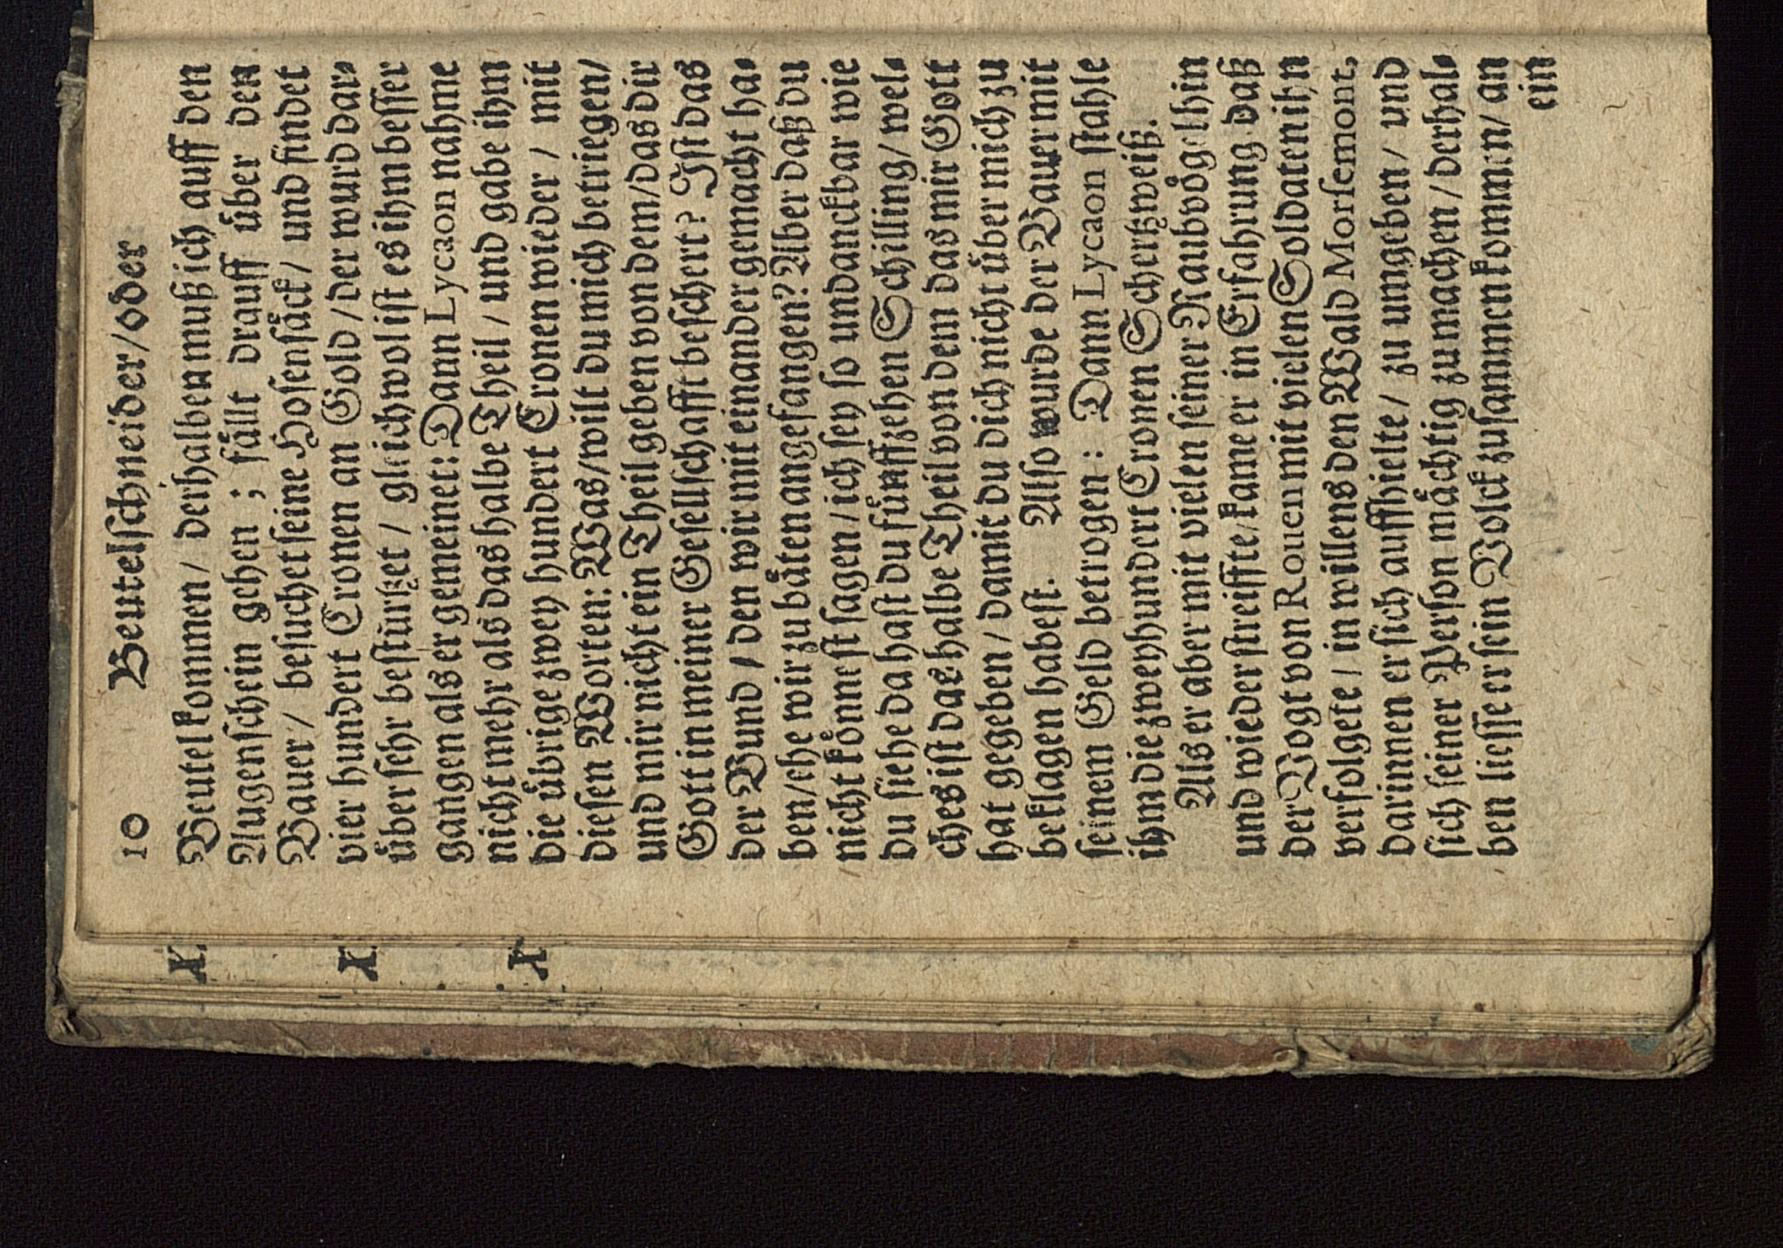 10 Beutelſchneider/oder
Beutel kommen/ derhalben muß ich auff den
Augenſchein gehen ; fällt drauff über den
Bauer/ beſuchet ſeine Hoſenſäck/ und findet
vier hundert Cronen an Gold/der wurd dar⸗
über ſehr beſtürtzet / gleichwol iſt es ihm beſſer
gangen als er gemeinet: Dann Lycaon nahme
nicht mehr als das halbe Theil / und gabe ihm
die übrige zwey hundert Cronen wieder / mit
dieſen Worten: Was/wilt du mich betriegen/
und mir nicht ein Theil geben von dem/das dir
Gott in meiner Geſellſchafft beſchert? Iſt das
der Bund / den wir mit einander gemacht ha⸗
ben/ehe wir zu bäten angefangen? Aber daß du
nicht könneſt ſagen/ich ſey ſo undanckbar wie
du ſiehe da haſt du fünffzehen Schilling/ wel⸗
ches iſt das halbe Theil von dem das mir Gott
hat gegeben/ damit du dich nicht über mich zu
beklagen habeſt. Alſo wurde der Bauer mit
ſeinem Geld betrogen : Dann Lycaon ſtahle
ihm die zweyhundert Cronen Schertzweiß.
Als er aber mit vielen ſeiner Raubvögel hin
und wieder ſtreiffte/kame er in Erfahrung daß
der Vogt von Rouen mit vielen Soldaten ihn
verfolgete/ in willens den Wald Morſemont,
darinnen er ſich auffhielte/ zu umgeben/ und
ſich ſeiner Perſon mächtig zu machen/derhal⸗
ben lieſſe er ſein Volck zuſammen kommen/ an
ein